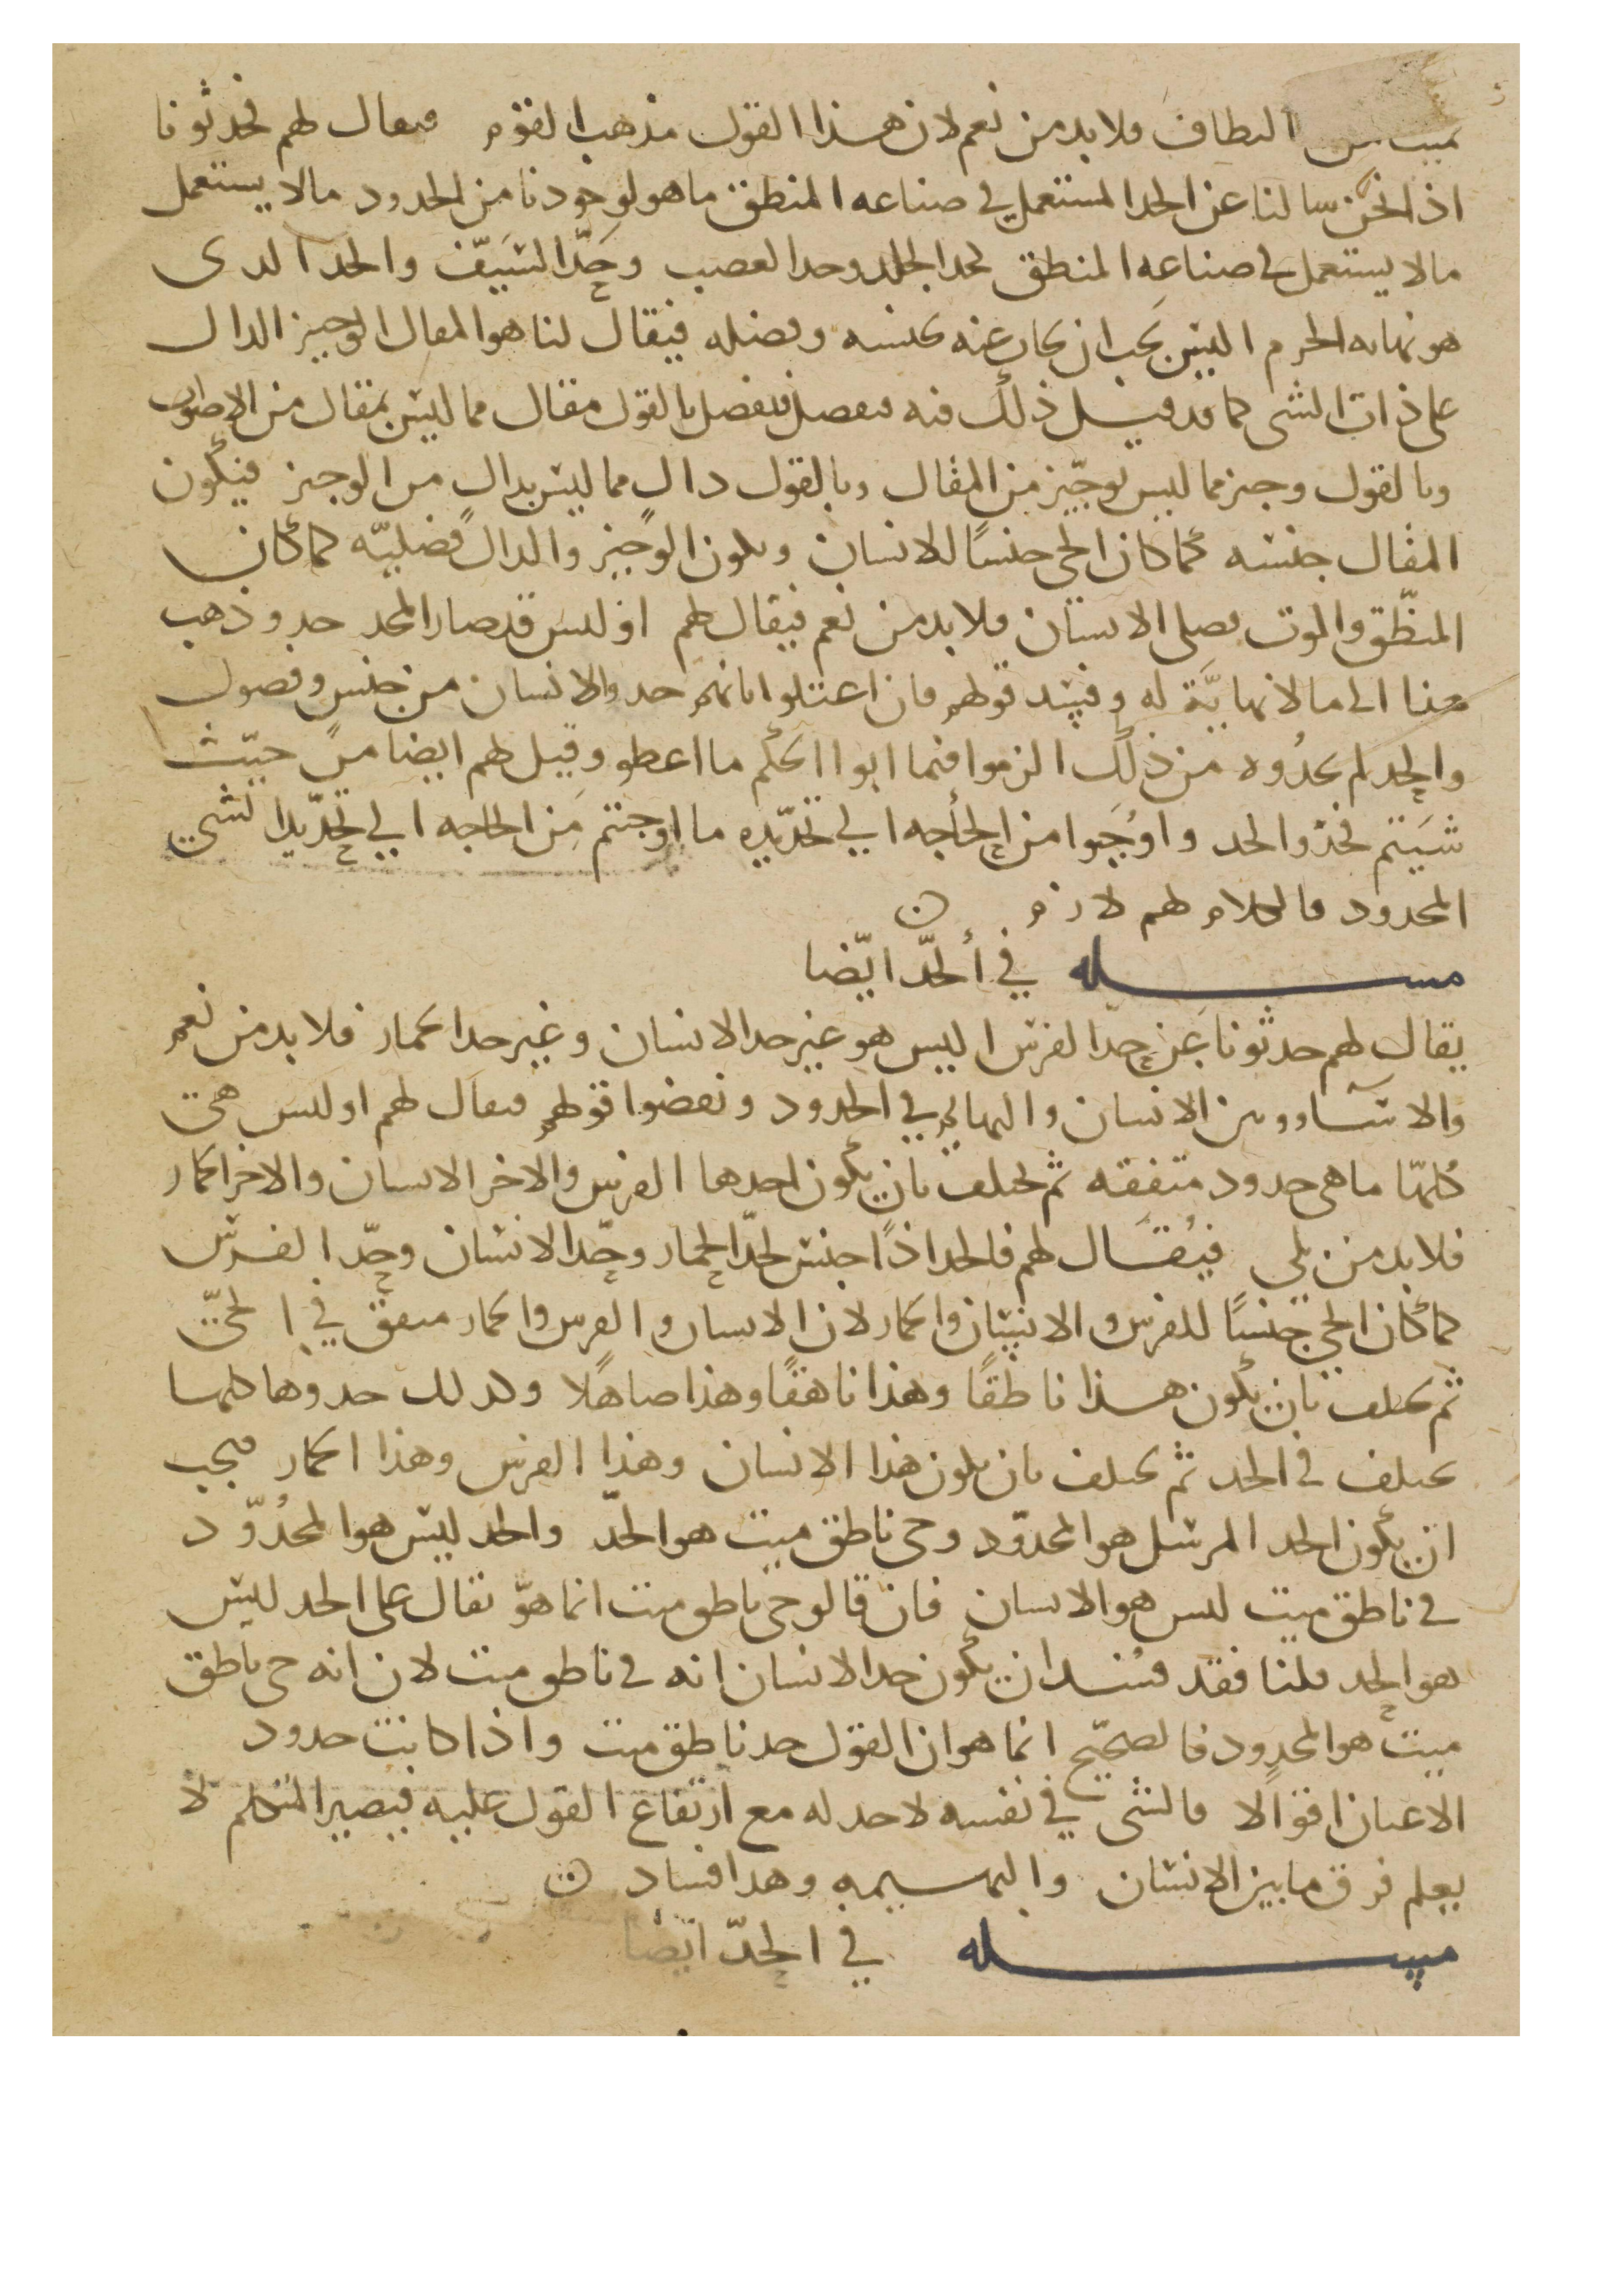 النطاق فلا بد من نعم لان هذا القول مذهب القوم فيقال لهم فحدثونا
اذا نحن سالنا عن الحد المستعمل في صناعه المنطق ما هو لوجودنا من الحدود ما لا يستعمل
ما لا يستعمل في صناعه المنطق كحد الجلد وحد العصب وحد السيف والحد الدى
هو نهايه الجرم اليس يجب ان يجاب عنه بجنسه وفصله فيقال لنا هو المقال الوجيز الدال
على ذات الشى كما قد قيل ذلك فيه فيفصل بالقول مقال مما ليس بمقال من الاصوات
وبالقول وجيز مما ليس بوجيز من المقال وبالقول دال مما ليس بدال من الوجيز فيكون
المقال جنسه كما كان الحي جنسًا للانسان ويكون الوجيز والدال فصليه كما كان
المنطق والموت فصلى الانسان فلا بد من نعم فيقال لهم اوليس قد صار للحد حد وذهب
هذا الى ما لا نهاية له وفسد قولهم فان اعتلوا بانهم حدوا الانسان من جنس وفصول
والحد لم يحدوه من ذلك الزموا فيما ابوا الحكم ما اعطو وقيل لهم ايضا من حيث
شيتم فحدوا الحد واوجبوا من الحاجه الي تحديده ما اوجبتم من الحاجه الي تحديد الشي
المحدود فالكلام لهم لازم ن
مسله في الحد ايضا
يقال لهم حدثونا عن حد الفرس اليس هو غير حد الانسان وغير حد الحمار فلا بد من نعم
والا تساوو بين الانسان والبهايم في الحدود ونقضوا قولهم فيقال لهم اوليس هي
كلها ما هى حدود متفقه ثم تختلف بان يكون احدها الفرس والاخر الانسان والاخر الحمار
فلا بد من بلي فيقال لهم فالحد اذًا جنس لحد الحمار وحد الانسان وحد الفرس
كما كان الحي جنسًا للفرس والانسان والحمار لان الانسان والفرس والحمار متفق في الحي
ثم تختلف بان يكون هذا ناطقًا وهذا ناهقًا وهذا صاهلا وكدلك حدوها كلها
تختلف في الحد ثم تختلف بان يكون هذا الانسان وهذا الفرس وهذا الحمار فيجب
ان يكون الحد المرسل هو المحدود وحى ناطق ميت هو الحد والحد ليس هو المحدود
في ناطق ميت ليس هو الانسان فان قالو حى ناطق ميت انما هو يقال على الحد ليس
هو الحد قلنا فقد فسد ان يكون حد الانسان انه في ناطق ميت لان انه حى ناطق
ميت هو المحدود فالصحيح انما هو ان القول حد ناطق ميت واذا كانت حدود
الاعيان اقوالا فالشى في نفسه لا حد له مع ارتفاع القول عليه فيصير المتكلم لا
يعلم فرق ما بين الانسان والبهيمه وهدا فساد ن
مسله في الحد ايضا